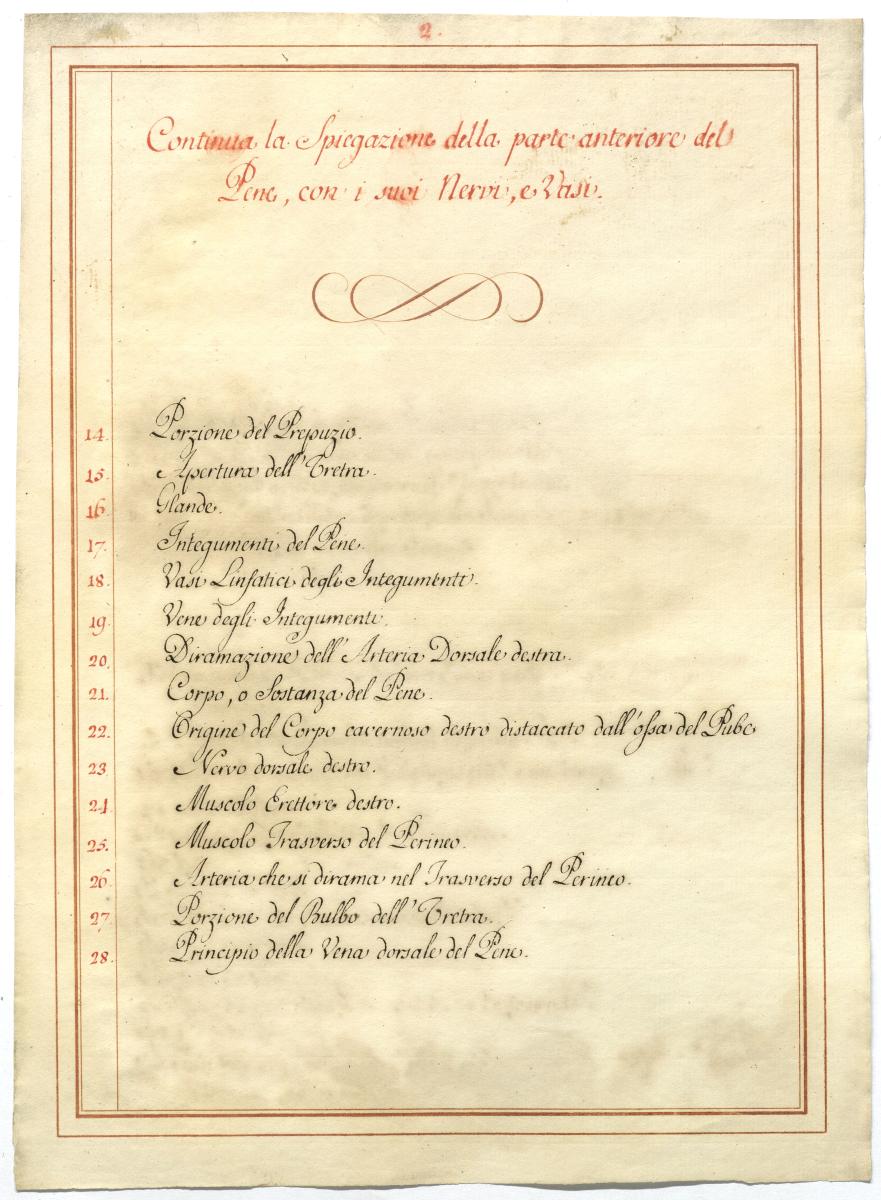 2.
Continua la Spiegazione della parte anteriore del
Pene, con i suoi Nervi, e Vasi.
14. Porzione del Prepuzio.
15. Apertura dell'Uretra.
16. Glande.
17. Integumenti del Pene.
18. Vasi Linfatici degli Integumenti.
19. Vene degli Integumenti.
20. Diramazione dell'Arteria Dorsale destra.
21. Corpo, o Sostanza del Pene.
22. Origine del Corpo cavernoso destro distaccato dall'ossa del Pube
23. Nervo dorsale destro.
24. Muscolo Erettore destro.
25. Muscolo Trasverso del Perineo.
26. Arteria che si dirama nel Trasverso del Perineo.
27. Porzione del Bulbo dell'Uretra.
28. Principio della Vena dorsale del Pene.